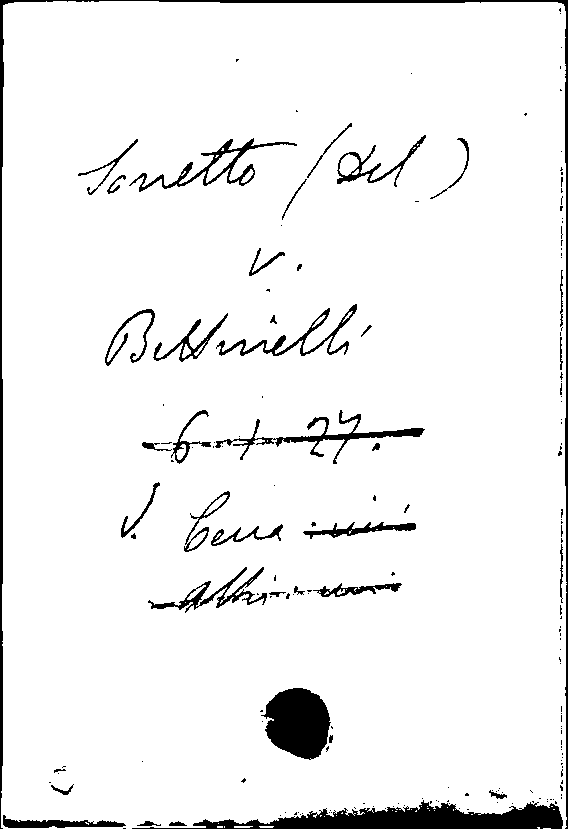 Sonetto (Del)
v.
Bettinelli
6. 1. 27.
V. Ceva